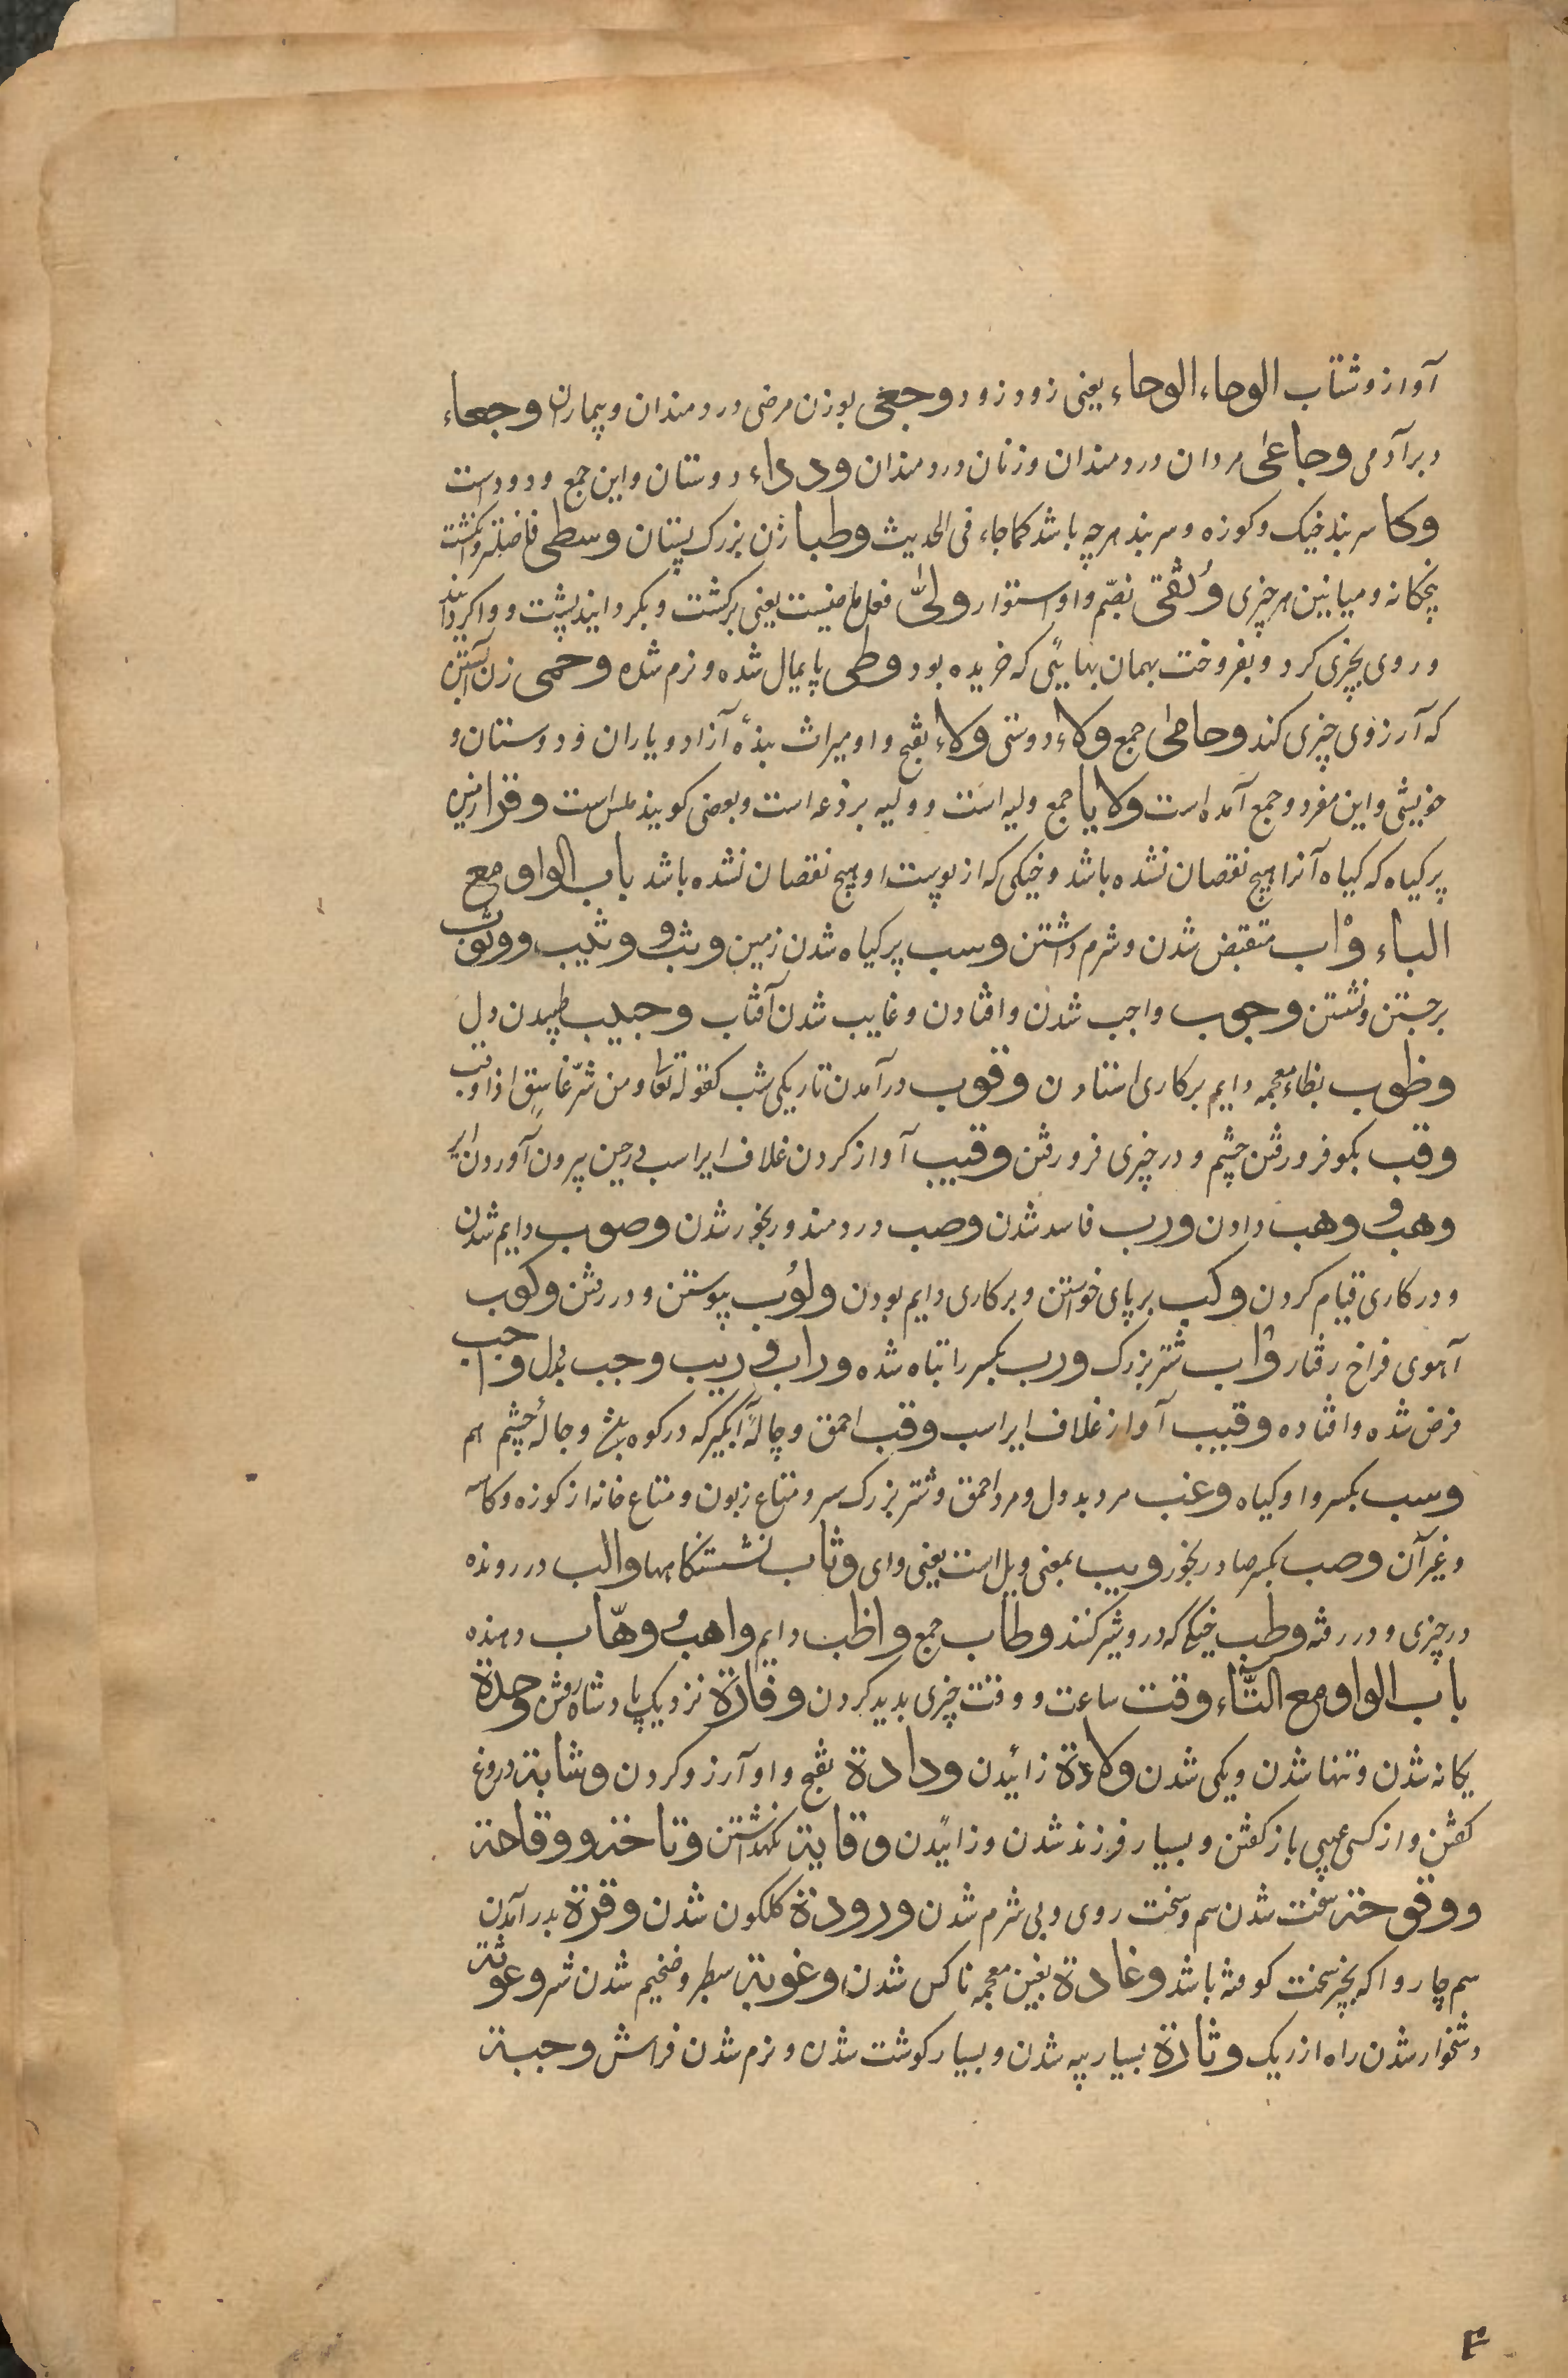 آواز و شتاب الوحاء الوحاء یعنی زود زود وجعی بوزن مرضی دردمندان و بیماران وجعاء
دبر آدمی وجاعی مردان دردمندان و زنان دردمندان ودداء دوستان و این جمع ودود است
وکا سر بند خیک و کوزه و سر بند هرچه باشد کما جاء فی الحدیث وطبا زن بزرک پستان وسطی فاضلتر و انکشت
پنجکانه و میانین هر چیزی وثقی بضم واو استوار ولی فعل ماضیست یعنی برکشت و بکردانید پشت و واکردانید
و روی بچیزی کرد و بفروخت بهمان بهایی که خریده بود وطی پایمال شده و نرم شده وحمی زن آبستن
که آرزوی چیزی کند وحامی جمع ولاء دوستی ولاء بفتح واو میراث بندهٔ آزاد و یاران و دوستان و
خویشی و این مفرد و جمع آمده است ولایا جمع ولیه است و ولیه برذعه است و بعضی کویند پلس است وفرا زمین
پر کیاه که کیاه آنرا هیچ نقصان نشده باشد و خیکی که از پوست او هیچ نقصان نشده باشد باب الواو مع
الباء وأب منقبض شدن و شرم داشتن وسب پر کیاه شدن زمین وثب و وثیب و وثوب
برجستن و نشستن وجوب واجب شدن و افتادن و غایب شدن آفتاب وجیب طپیدن دل
وظوب بظاء معجمه دایم بر کاری استادن وقوب درآمدن تاریکی شب کقوله تعا و من شر غاسق اذا وقب
وقب بکو فرو رفتن چشم و در چیزی فرو رفتن وقیب آواز کردن غلاف ایر اسب در حین بیرون آوردن ایر
وهب و وهب دادن ورب فاسد شدن وصب دردمند و رنجور شدن وصوب دایم شدن
و در کاری قیام کردن وکب بر پای خواستن و بر کاری دایم بودن ولوب پیوستن و در رفتن وکوب
آهوی فراخ رفتار وأب شتر بزرک ورب بکسر را تباه شده وراب فریب وجب بددل واجب
فرض شده و افتاده وقیب آواز غلاف ایر اسب وقب احمق و چالهٔ آبکیر که در کوه باشد و چالهٔ چشم هم
وسب بکسر واو کیاه وغب مرد بددل و مرد احمق و شتر بزرک سر و متاع زبون و متاع خانه از کوزه و کاسه
و غیر آن وصب بکسر صاد رنجور ویب بمعنی ویل است یعنی وای وثاب نشستنکاهها والب در رونده
در چیزی و در رفته وطب خیکی که درو شیر کنند وطاب جمع واظب دایم واهب وهّاب دهنده
باب الواو مع التّاء وقت ساعت و وقت چیزی پدید کردن وفازة نزدیک پادشاه رفتن وحدة
یکانه شدن و تنها شدن و یکی شدن ولادة زائیدن ودادة بفتح واو آرزو کردن وشایة دروغ
کفتن و از کسی عیبی باز کفتن و بسیار فرزند شدن و زائیدن وقایة نکهداشتن وتاخة و وقاحة
و وقوحة سخت شدن سم و سخت روی و بی شرم شدن ورودة کلکون شدن وقرة بدر آمدن
سم چاروا که بچیز سخت کوفته باشد وغادة بغین معجمه ناکس شدن وغوبة سطبر و ضخیم شدن شتر وعوثة
دشخوار شدن راه از ریک وثارة بسیار پیه شدن و بسیار کوشت شدن و نرم شدن فراش وجبة
۴